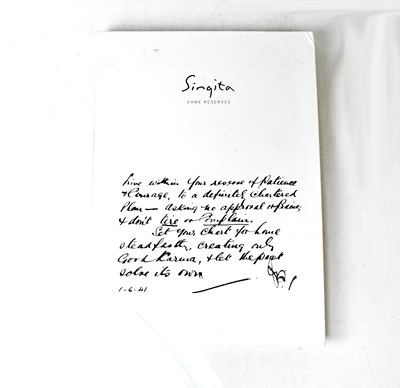 Singita
GAME RESERVES
Live within your reserve of Patience
& Courage, to a definitely chartered
Plan — asking no approval or praise,
& don't tire or Complain.
Set your chart for home
steadfastly, creating only
Good Karma, & let the past
solve its own
1-6-41.